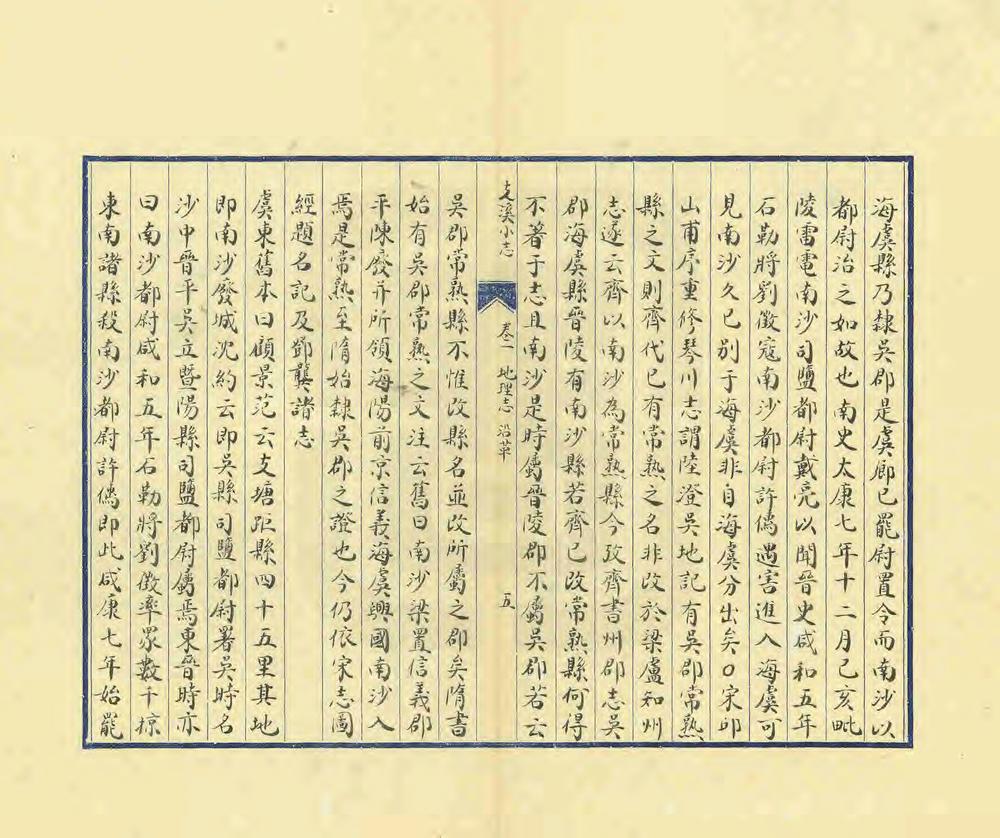 海虞縣乃隸吳郡是虞鄉已罷尉置令而南沙以
都尉治之如故也南史太康七年十二月己亥毗
陵雷電南沙司鹽都尉戴亮以聞晉史咸和五年
石勒將劉徵寇南沙都尉許儒遇害進入海虞可
見南沙久已别于海虞非自海虞分出矣○宋邱
山甫序重修琴川志謂陸澄吳地記有吳郡常熟
縣之文則齊代已有常熟之名非改於梁盧知州
志遂云齊以南沙為常熟縣今攷齊書州郡志吳
郡海虞縣晉陵有南沙縣若齊已改常熟縣何得
不著于志且南沙是時屬晉陵郡不屬吳郡若云
支溪小志 卷一 地理志 沿革 五
吳郡常熟縣不惟改縣名並改所屬之郡矣隋書
始有吳郡常熟之文注云舊曰南沙梁置信義郡
平陳廢并所領海陽前京信義海虞興國南沙入
焉是常熟至隋始隸吳郡之證也今仍依宋志圖
經題名記及鄧龔諸志
虞東舊本曰顧景范云支塘距縣四十五里其地
即南沙廢城沈約云即吳縣司鹽都尉署吳時名
沙中晉平吳立暨陽縣司鹽都尉屬焉東晉時亦
曰南沙都尉咸和五年石勒將劉徵率眾數千掠
東南諸縣殺南沙都尉許儒即此咸康七年始罷